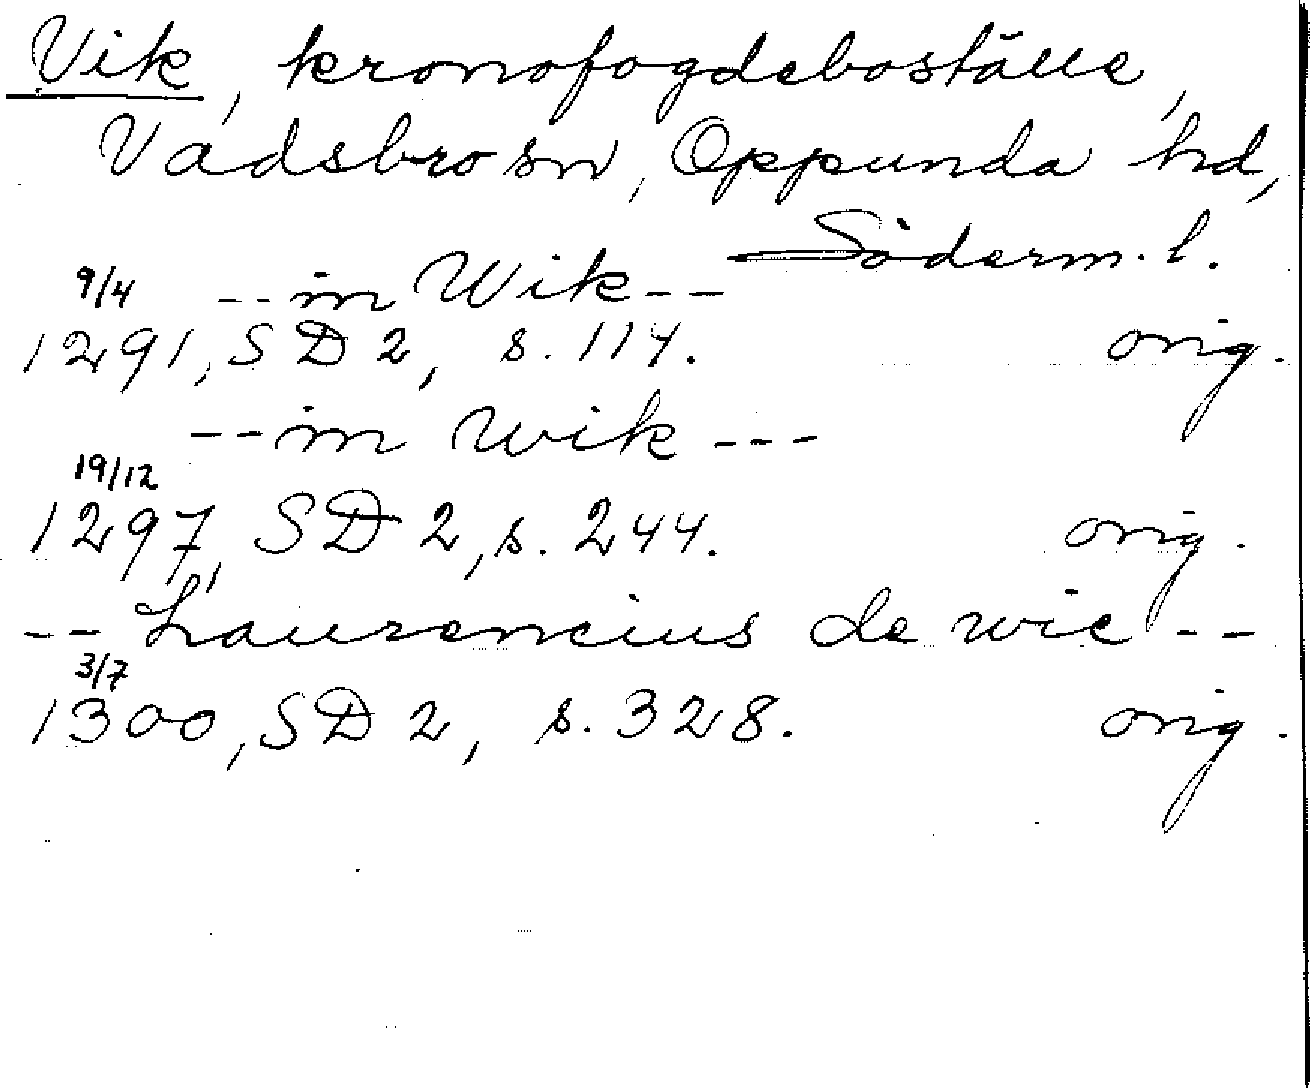 Vik, kronofogdeboställe,
Vadsbro sn, Oppunda hd,
Söderm. l.
9/4 -- in Wik --
1291, SD 2, s. 114. orig.
-- in Wik ---
19/12
1297, SD 2, s. 244. orig.
-- Laurencius de wic --
3/7
1300, SD 2, s. 328. orig.